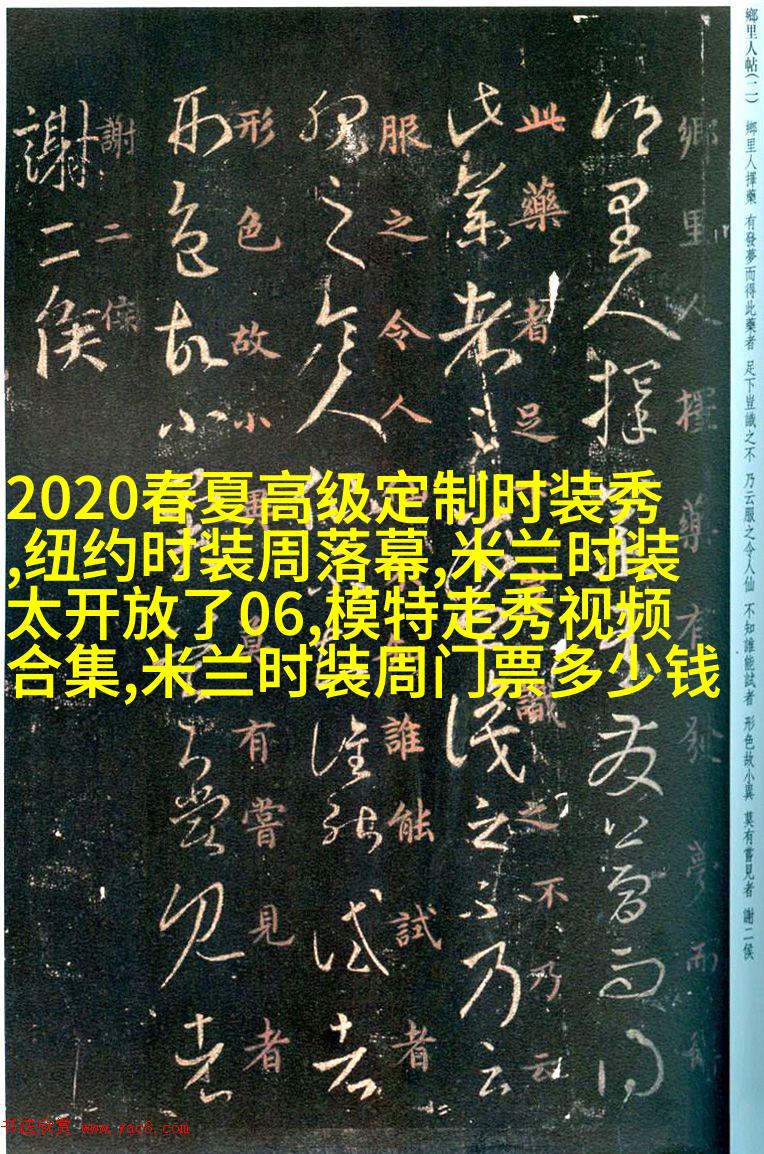 鄉里人帖(二) 鄉里人擇藥 有發夢而得此藥者 足下豈識之不 乃云服之令人仙 不知誰能試者 形色故小異 莫有嘗見者 謝二侯
鄉里人擇藥有發夢而
此藥者足
識之不乃云
服之令人
誰能試者
形色故小異莫有嘗見者
謝二侯
2020春夏高级定制时装秀
,纽约时装周落幕,米兰时装
太开放了06,模特走秀视频
合集,米兰时装周门票多少钱
书法欣赏 www.yac8.com